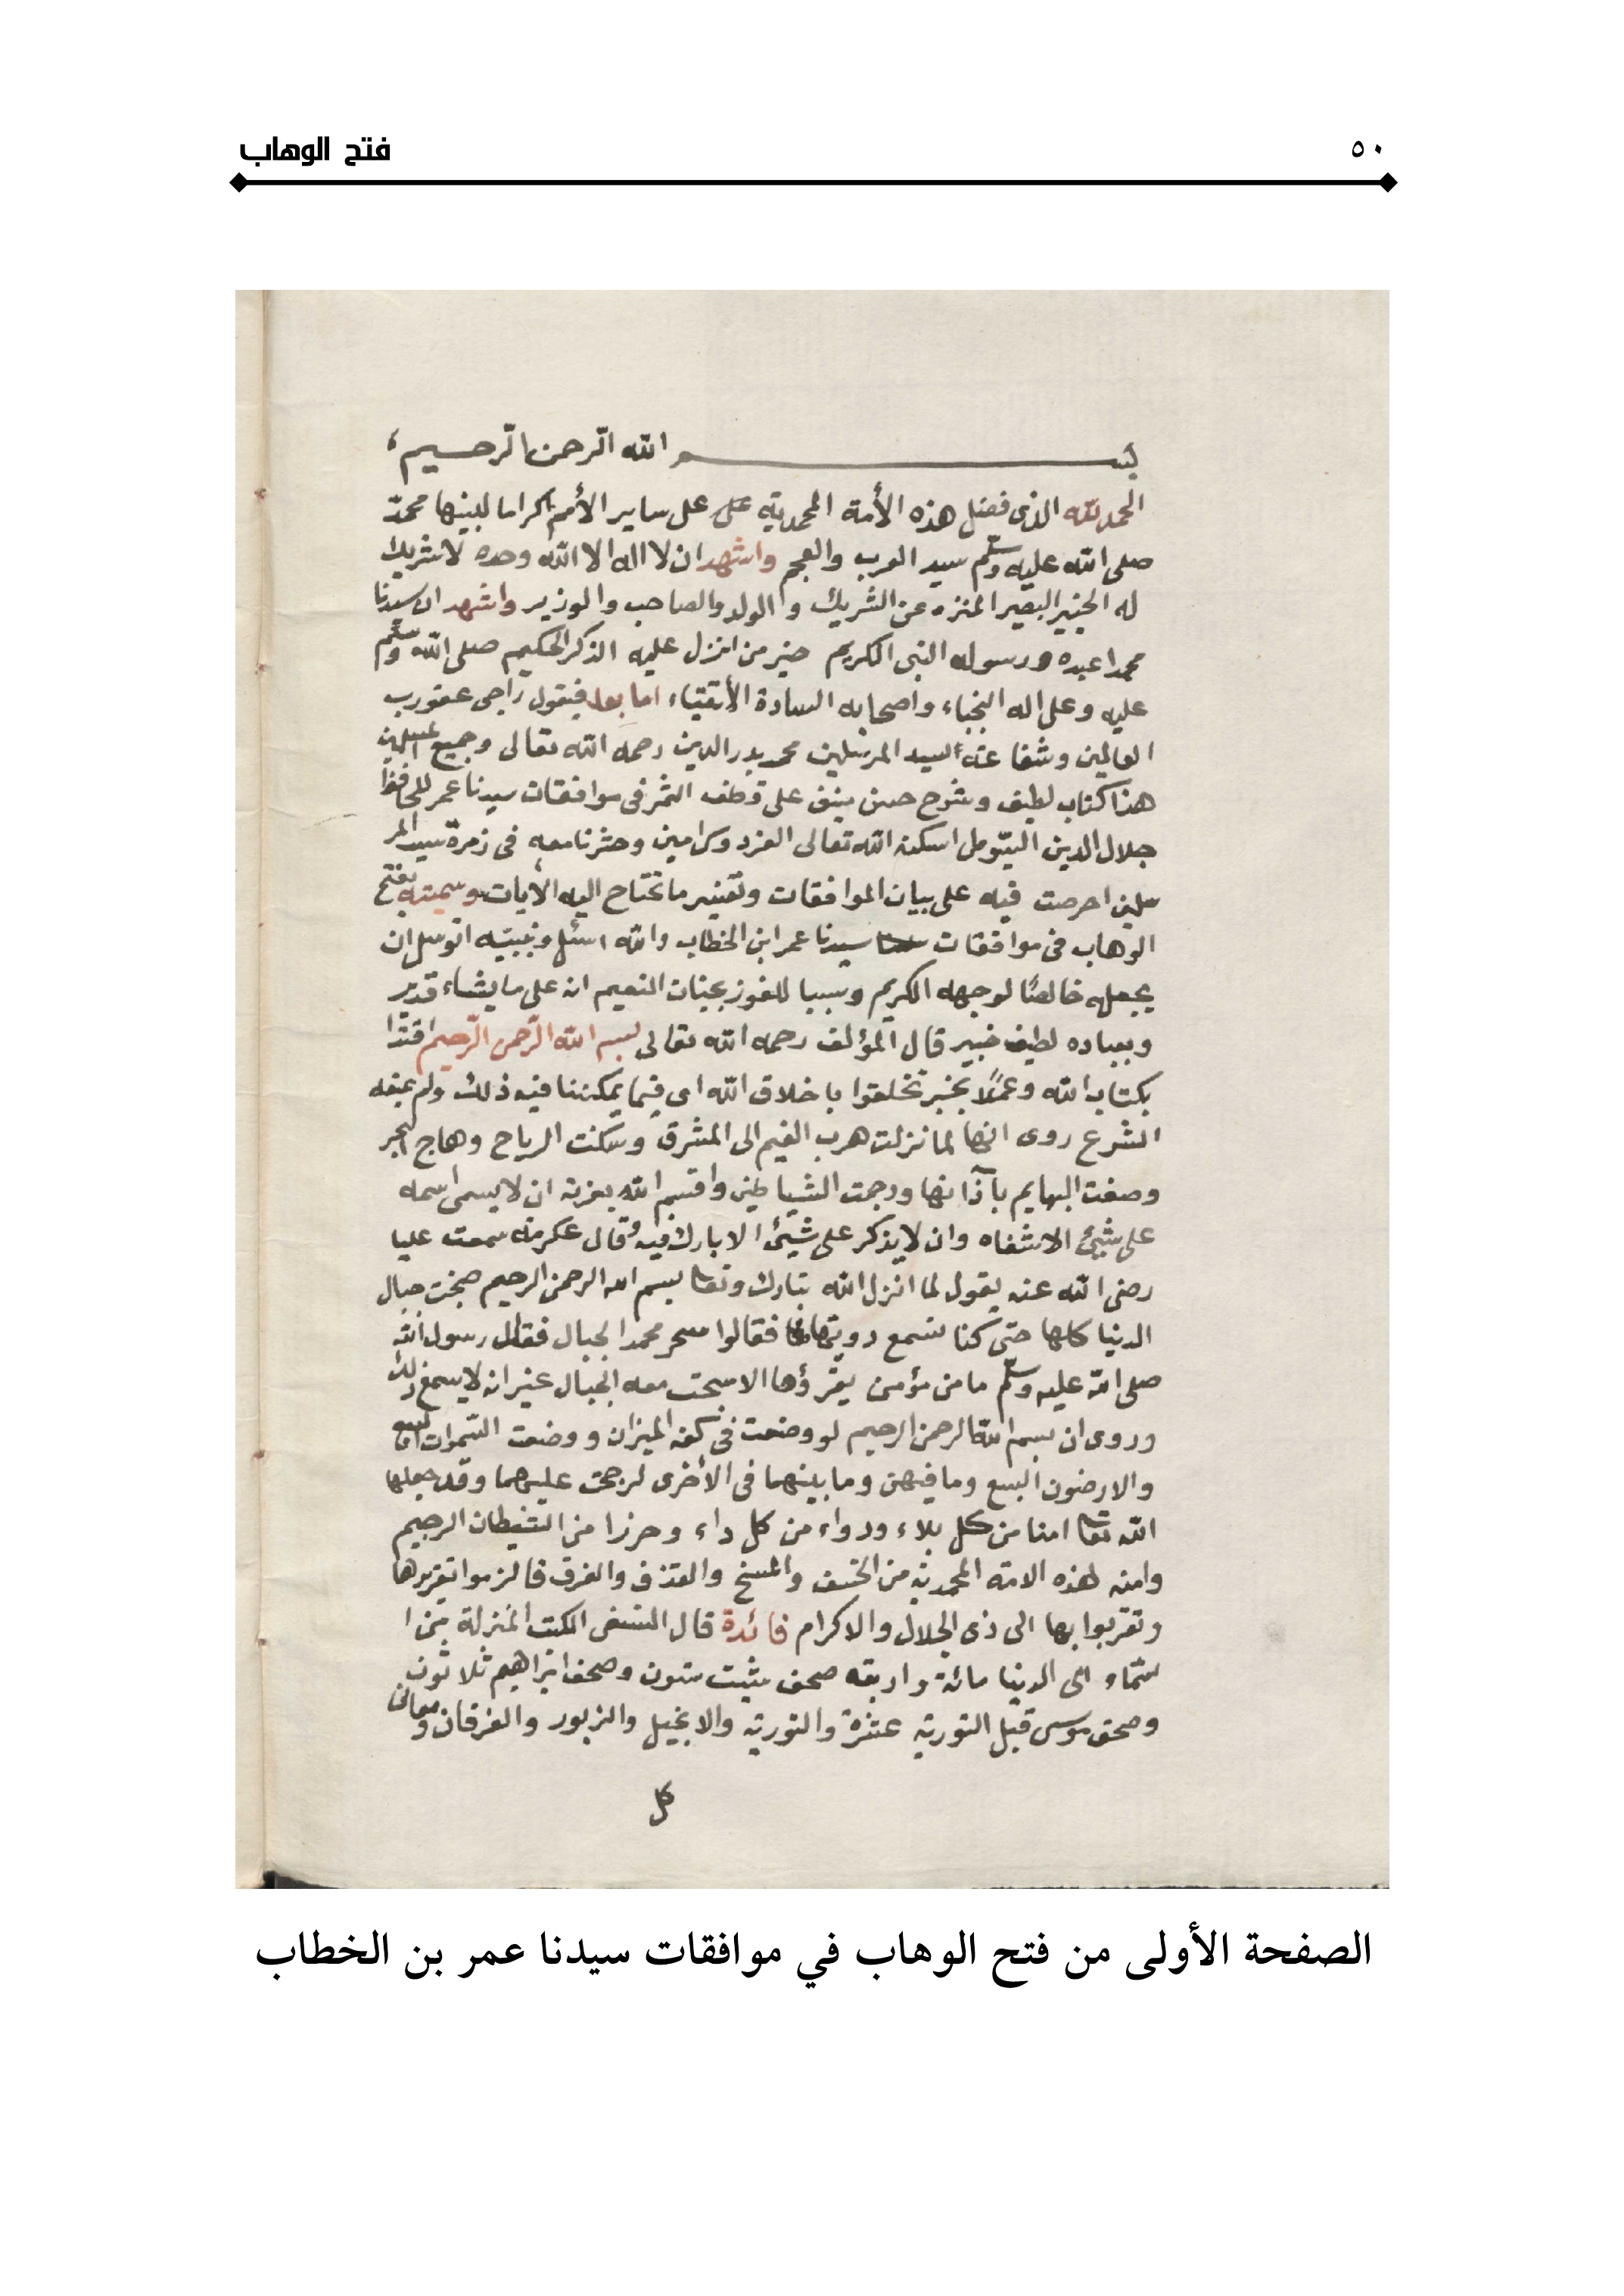 ٥٠
فتح الوهاب
بسم الله الرحمن الرحيم
الحمد لله الذى فضل هذه الأمة المحمدية على على ساير الأمم اكراما لبنيها محمد
صلى الله عليه وسلم سيد العرب والعجم واشهد ان لا اله الا الله وحده لا شريك
له الخبير البصير المنزه عن الشريك والولد والصاحب والوزير واشهد ان سيدنا
محمدا عبده ورسوله النبى الكريم خير من انزل عليه الذكر الحكيم صلى الله وسلم
عليه وعلى اله النجباء واصحابه السادة الأتقياء اما بعد فيقول راجى عفو رب
العالمين وشفاعته السيد المرسلين محمد بدر الدين رحمه الله تعالى وجميع المسلمين
هذا كتاب لطيف وشرح حسن ينف على قطف الثمر فى موافقات سيدنا عمر للحافظ
جلال الدين السيوطى اسكنه الله تعالى الفردوس امين وحشرنا معه فى زمرة سيد المر
سلين احرصت فيه على بيان الموافقات وتفسير ما تحتاج اليه الأيات وسميته بفتح
الوهاب فى موافقات سيدنا عمر ابن الخطاب والله اسئل وبنبيه اتوسل ان
يجعله خالصًا لوجهه الكريم وسببا للفوز بجنات النعيم انه على ما يشاء قدير
وبعباده لطيف خبير قال المؤلف رحمه الله تعالى بسم الله الرحمن الرحيم اقتدا
بكتاب الله وعملًا بخبر تخلقوا باخلاق الله اى فيما يمكننا فيه ذلك ولم يمنعه
الشرع روى انها لما نزلت هرب الغيم الى المشرق وسكنت الرياح وهاج البحر
وصغت البهايم بآذانها ورجمت الشياطين واقسم الله بعزته ان لا يسمى اسمه
على شيئ الا شفاه وان لا يذكر على شيئ الا بارك فيه وقال عكرمة سمعت عليا
رضى الله عنه يقول لما انزل الله تبارك وتعا بسم الله الرحمن الرحيم ضجت جبال
الدنيا كلها حتى كنا نسمع دويها فقالوا سحر محمد الجبال فقال رسول الله
صلى الله عليه وسلم ما من مؤمن يقرؤها الا سبحت معه الجبال غير انه لا يسمع ذلك
وروى ان بسم الله الرحمن الرحيم لو وضعت فى كفه الميزان ووضعت السموات السبع
والارضون السبع وما فيهن وما بينهما فى الأخرى لرجحت عليهما وقد جعلها
الله تعا امنا من كل بلاء ودواء من كل داء وحرزا من الشيطان الرجيم
وامنه لهذه الامة المحمدية من الخسف والمسخ والقذف والغرق فالزموا تقريرها
وتقربوا بها الى ذى الجلال والاكرام فائدة قال النسفى الكتب المنزلة من ا
لسماء الى الدنيا مائة واربعه صحف شيث ستون وصحف ابراهيم ثلاثون
وصحف موسى قبل التورية عشرة والتورية والانجيل والزبور والفرقان ومعانى
كل
الصفحة الأولى من فتح الوهاب في موافقات سيدنا عمر بن الخطاب